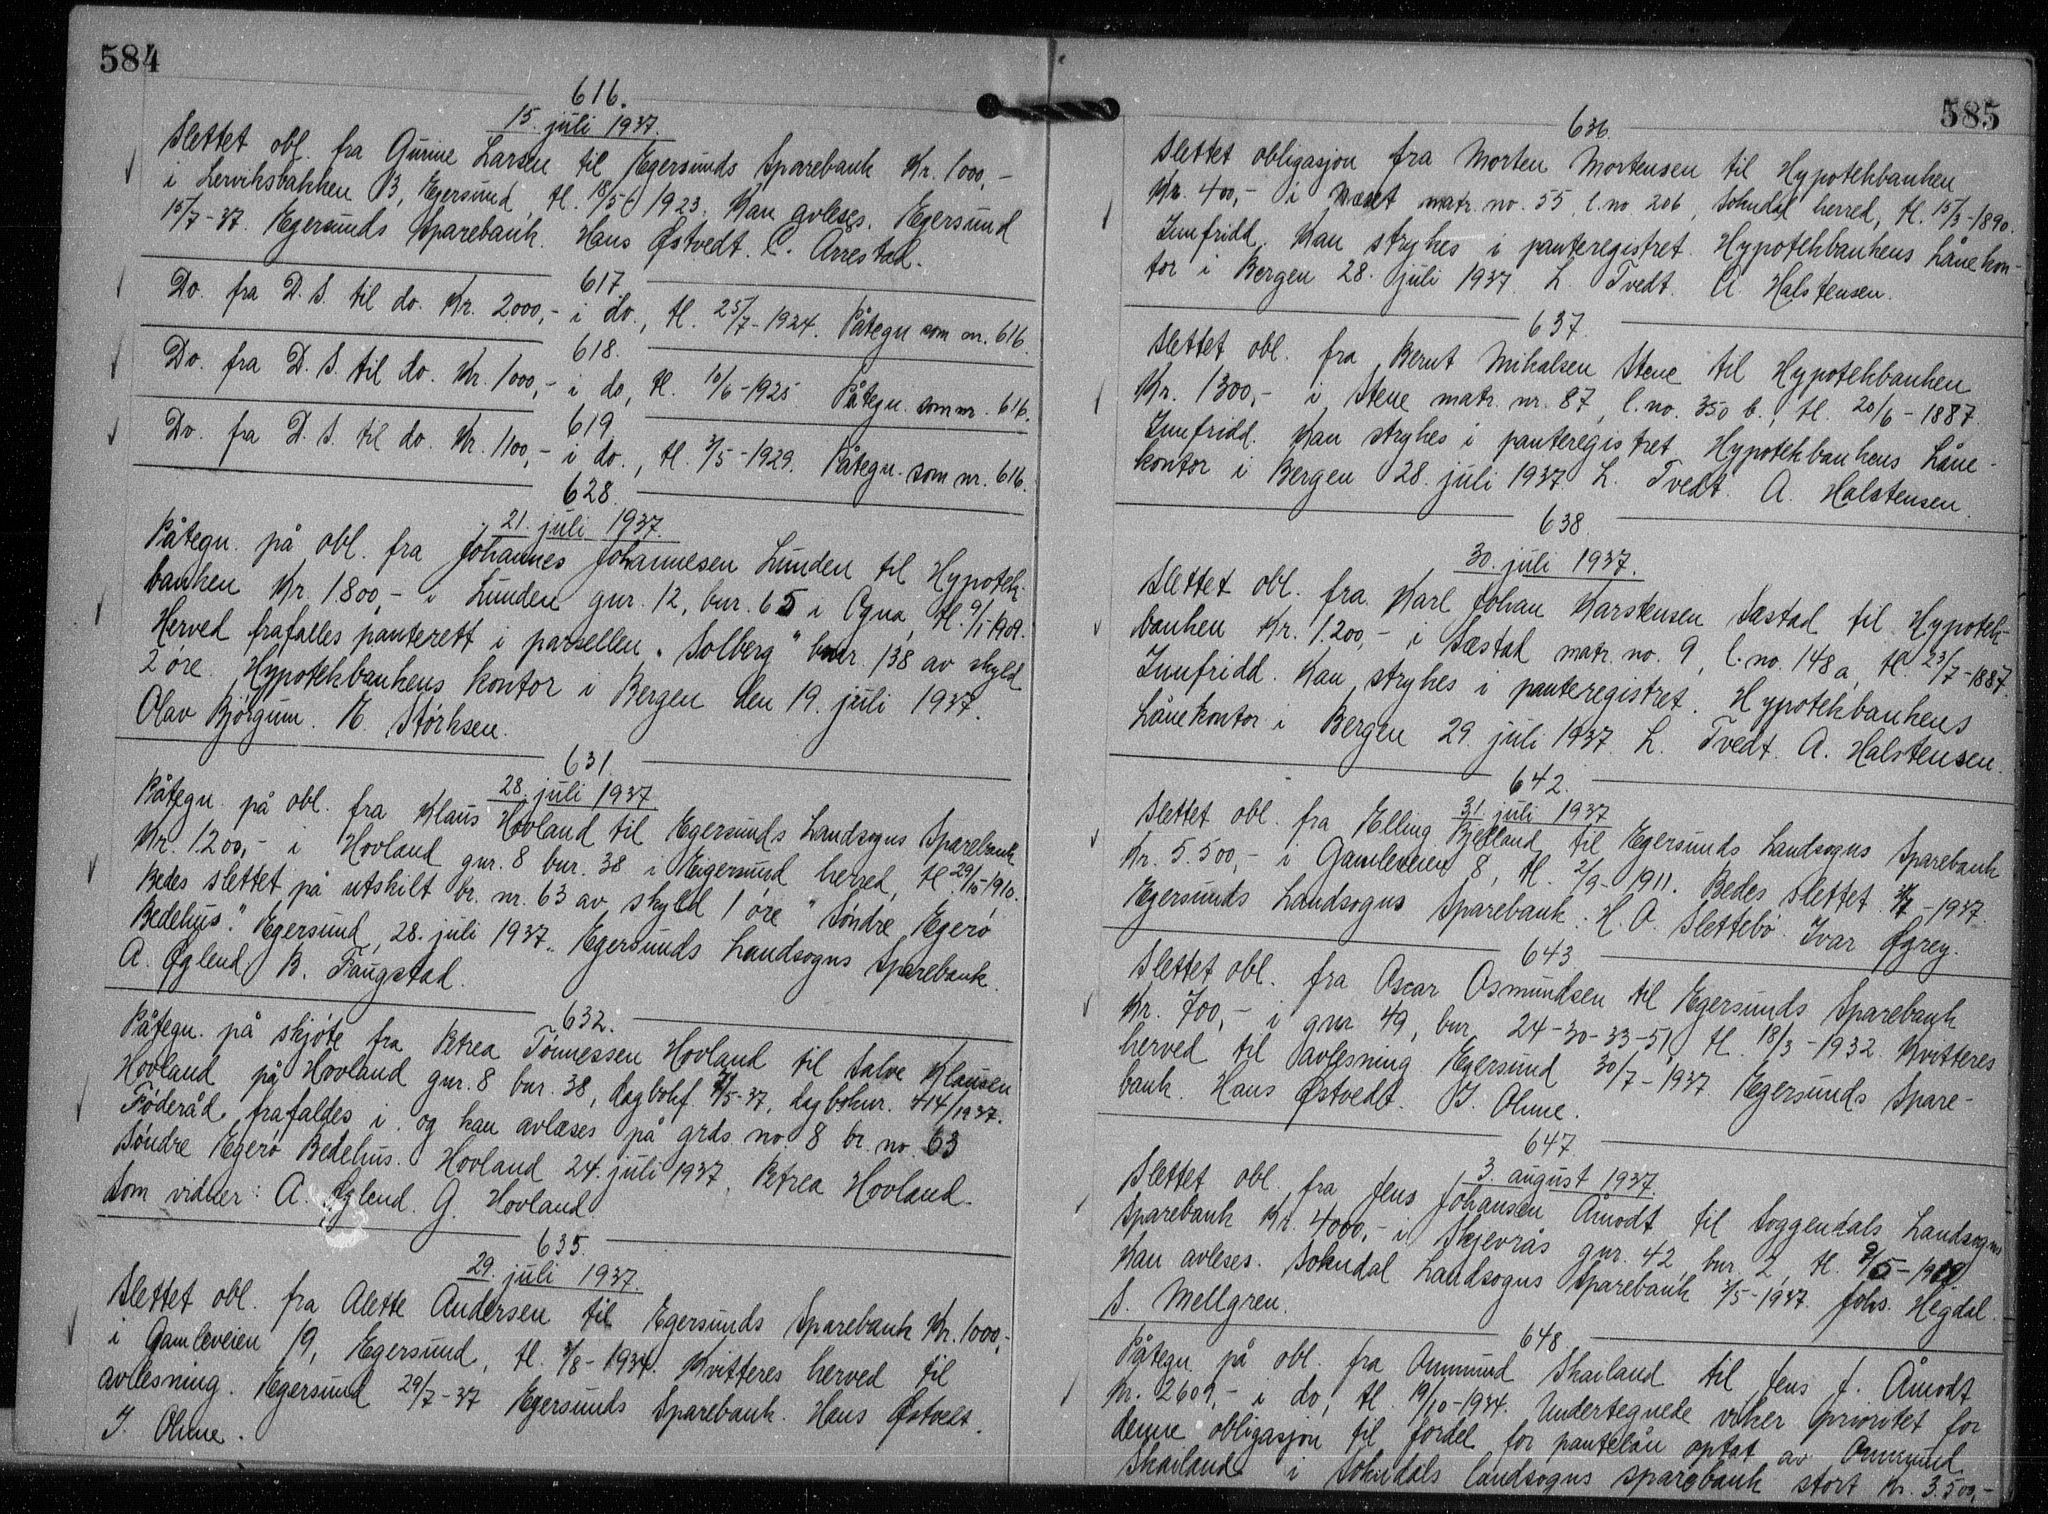 584
616.
15. juli 1937.
Slettet obl. fra Gurine Larsen til Egersunds Sparebank Kr. 1000,-
i Lerviksbakken 13, Egersund, tl. 18/5 1923. Kan avleses. Egersund
15/7-37. Egersunds Sparebank. Hans Østvedt. C. Årrestad.
617
Do. fra D.S. til do. Kr. 2000,- i do., tl. 25/7-1924. Påtegn som nr. 616.
618.
Do. fra D.S. til do. Kr. 1000,- i do, tl. 10/6-1925 Påtegn. som nr. 616.
619
Do. fra D.S. til do. Kr. 1100,- i do., tl. 3/5-1929. Påtegn. som nr. 616.
628.
21. juli 1937.
Påtegn. på obl. fra Johannes Johannesen Lunden til Hypotek-
banken Kr. 1800,- i Lunden gnr. 12, bnr. 65 i Ogna, tl. 9/1-1909.
Herved frafalles panterett i parsellen "Solberg" bnr. 138 av skyld
2 øre. Hypotekbankens kontor i Bergen den 19. juli 1937.
Olav Bjørgum. E. Størksen.
631.
28. juli 1937
Påtegn. på obl. fra Klaus Hovland til Egersunds Landsogns Sparebank
Kr. 1200,- i Hovland gnr. 8 bnr. 38 i Eigersund herred, tl. 29/10-1910.
Bedes slettet på utskilt br. nr. 63 av skyld 1 øre "Søndre Egerø
Bedehus". Egersund, 28. juli 1937. Egersunds Landsogns Sparebank.
A. Øglend B. Faugstad.
632.
Påtegn. på skjøte fra Petrea Tønnessen Hovland til Salve Klausen
Hovland på Hovland gnr. 8 bnr. 38, dagbokf. 7/5-37, dagboknr. 414/1937.
Føderåd frafaldes i og kan avlæses på grds no 8 br. no. 63
Søndre Egerø Bedehus. Hovland 24. juli 1937. Petrea Hovland.
Som vidner: A. Øglend. G. Hovland.
635.
29. juli 1937.
Slettet obl. fra Alette Andersen til Egersunds Sparebank Kr. 1000,-
i Gamleveien 19, Egersund, tl. 3/8-1934. Kvitteres herved til
avlesning. Egersund 29/7-37 Egersunds Sparebank. Hans Østvedt.
J. Olme.
585
636.
Slettet obligasjon fra Morten Mortensen til Hypotekbanken
Kr. 400,- i matr. no. 55, l. no 206, Sokndal herred, tl. 15/3-1890.
Innfridd. Kan strykes i panteregistret. Hypotekbankens Lånekon-
tor i Bergen 28. juli 1937. L. Tvedt. A. Halstensen.
637.
Slettet obl. fra Bernt Mikalsen Stene til Hypotekbanken
Kr. 1300,- i Stene matr. nr. 87, l. no. 350 b., tl. 20/6-1887.
Innfridd. Kan strykes i panteregistret Hypotekbankens Låne-
kontor i Bergen 28. juli 1937 L. Tvedt. A. Halstensen.
638.
30. juli 1937.
Slettet obl. fra Karl Johan Karstensen Sæstad til Hypotek-
banken Kr. 1.200,- i Sæstad matr. no. 9, l. no. 148 a, tl. 23/7-1887.
Innfridd. Kan strykes i panteregistret. Hypotekbankens
Lånekontor i Bergen 29. juli 1937. L. Tvedt. A. Halstensen.
642.
31. juli 1937
Slettet obl. fra Elling Bjelland til Egersunds Landsogns Sparebank
Kr. 5.500,- i Gamleveien 8, tl. 2/9-1911. Bedes slettet 31/7-1937.
Egersunds Landsogns Sparebank. H. A. Slettebø. Ivar Øgrey.
643
Slettet obl. fra Oscar Osmundsen til Egersunds Sparebank
Kr. 700,- i gnr 49, bnr. 24-30-33-51, tl. 18/3-1932. Kvitteres
herved til avlesning Egersund 30/7-1937. Egersunds Spare-
bank. Hans Østvedt. J. Olme.
647.
3. august 1937.
Slettet obl. fra Jens Johansen Åmodt til Soggendals Landsogns
Sparebank Kr. 4000,- i Skjevrås gnr. 42, bnr. 2, tl.
Kan avleses. Sokndal Landsogns Sparebank 3/5-1937. Johs. Hegdal.
S. Mellgren.
648
Påtegn på obl. fra Ommund Skailand til Jens J. Åmodt
Kr. 2609,- i do, tl. 19/10-1934. Undertegnede viker prioritet for
denne obligasjon til fordel for pantelån optat av Ommund
Skailand i Sokndals landsogns sparebank stort Kr. 3.500,-